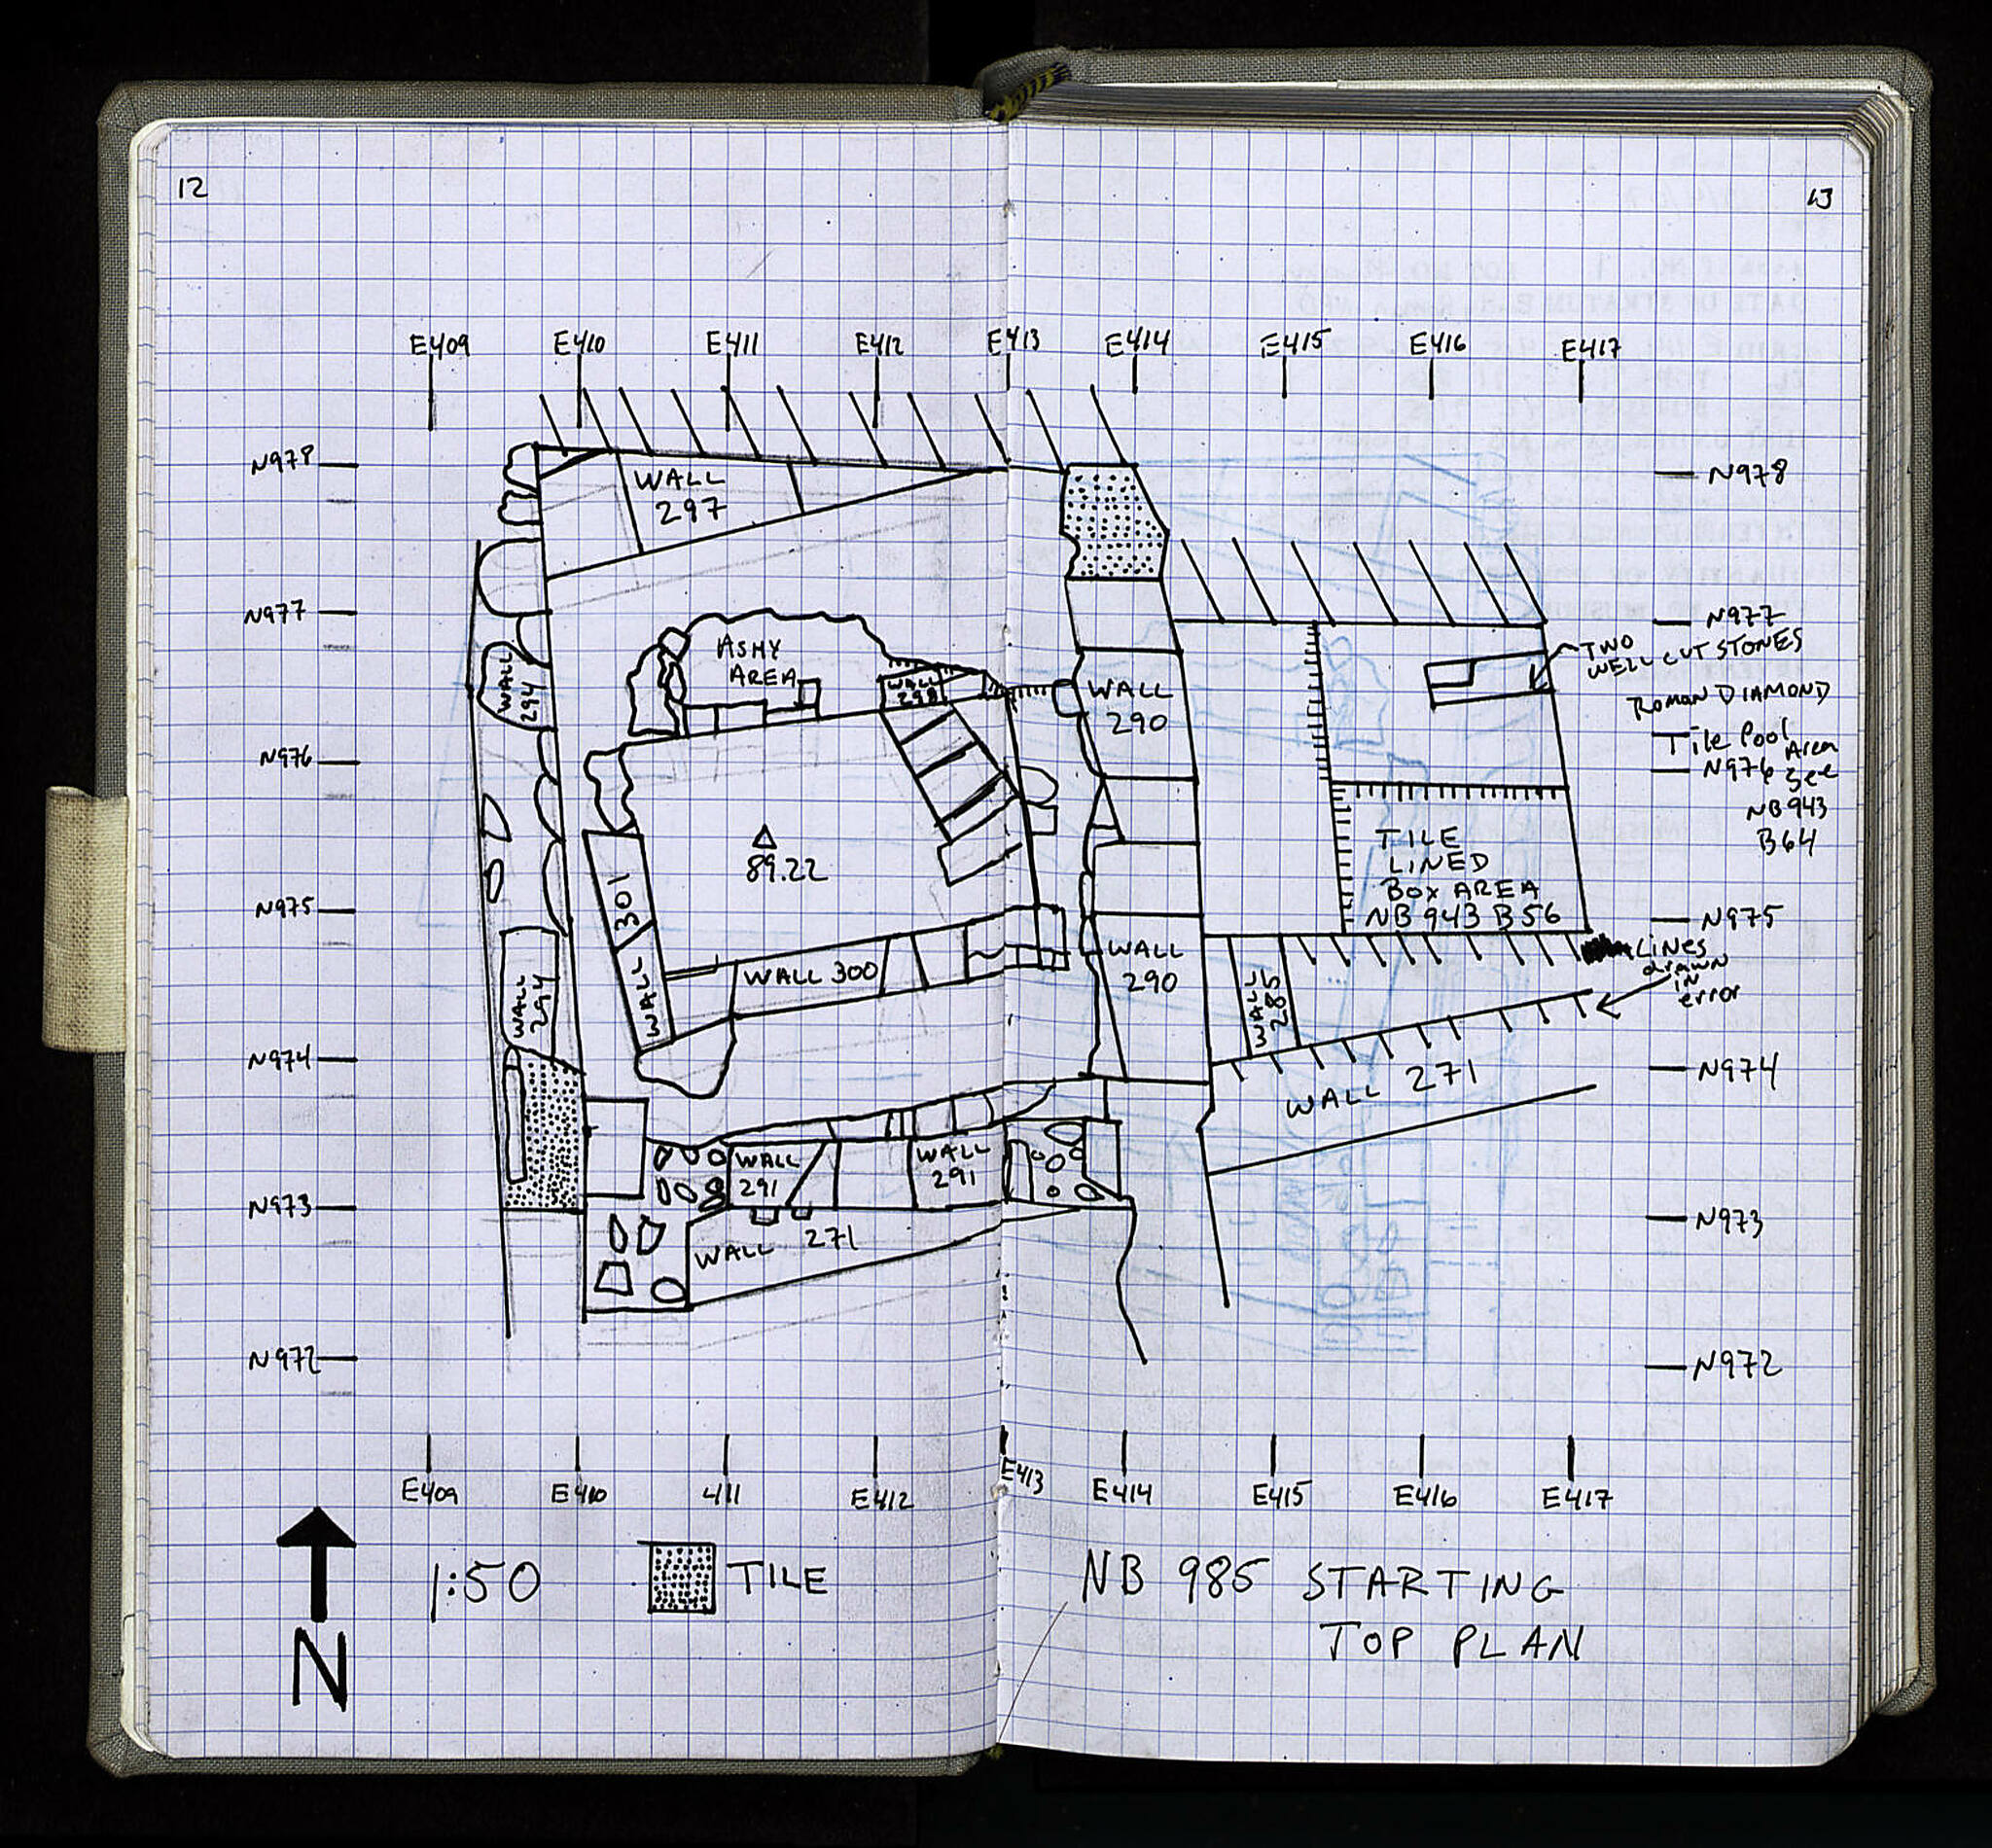 12
13
E409 E410 E411 E412 E413 E414 E415 E416 E417
N978
N978
WALL
297
N977
N977
TWO
WELL CUT STONES
ASHY
AREA
WALL
294
WALL
298
WALL
290
ROMAN DIAMOND
Tile Pool
Area
N976
N976 See
NB 943
B64
89.22
TILE
LINED
BOX AREA
NB 943 B56
WALL 301
N975
N975
LINES
drawn
IN
error
WALL 300
WALL
290
WALL
294
WALL
285
N974
N974
WALL 271
WALL
291
WALL
291
N973
N973
WALL 271
N972
N972
E409 E410 411 E412 E413 E414 E415 E416 E417
N
1:50
TILE
NB 985 STARTING
TOP PLAN